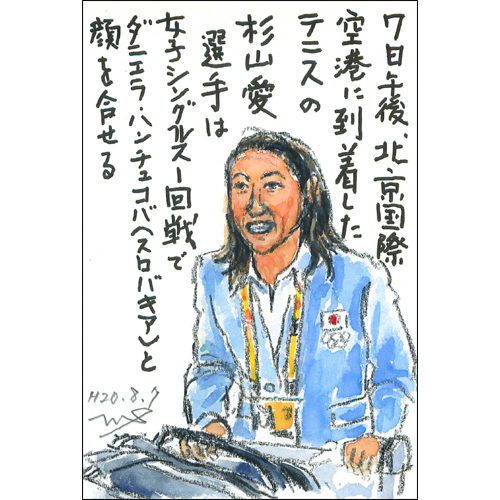 7日午後、北京国際
空港に到着した
テニスの
杉山愛
選手は
女子シングルス1回戦で
ダニエラ・ハンチュコバ(スロバキア)と
顔を合せる
H20.8.7